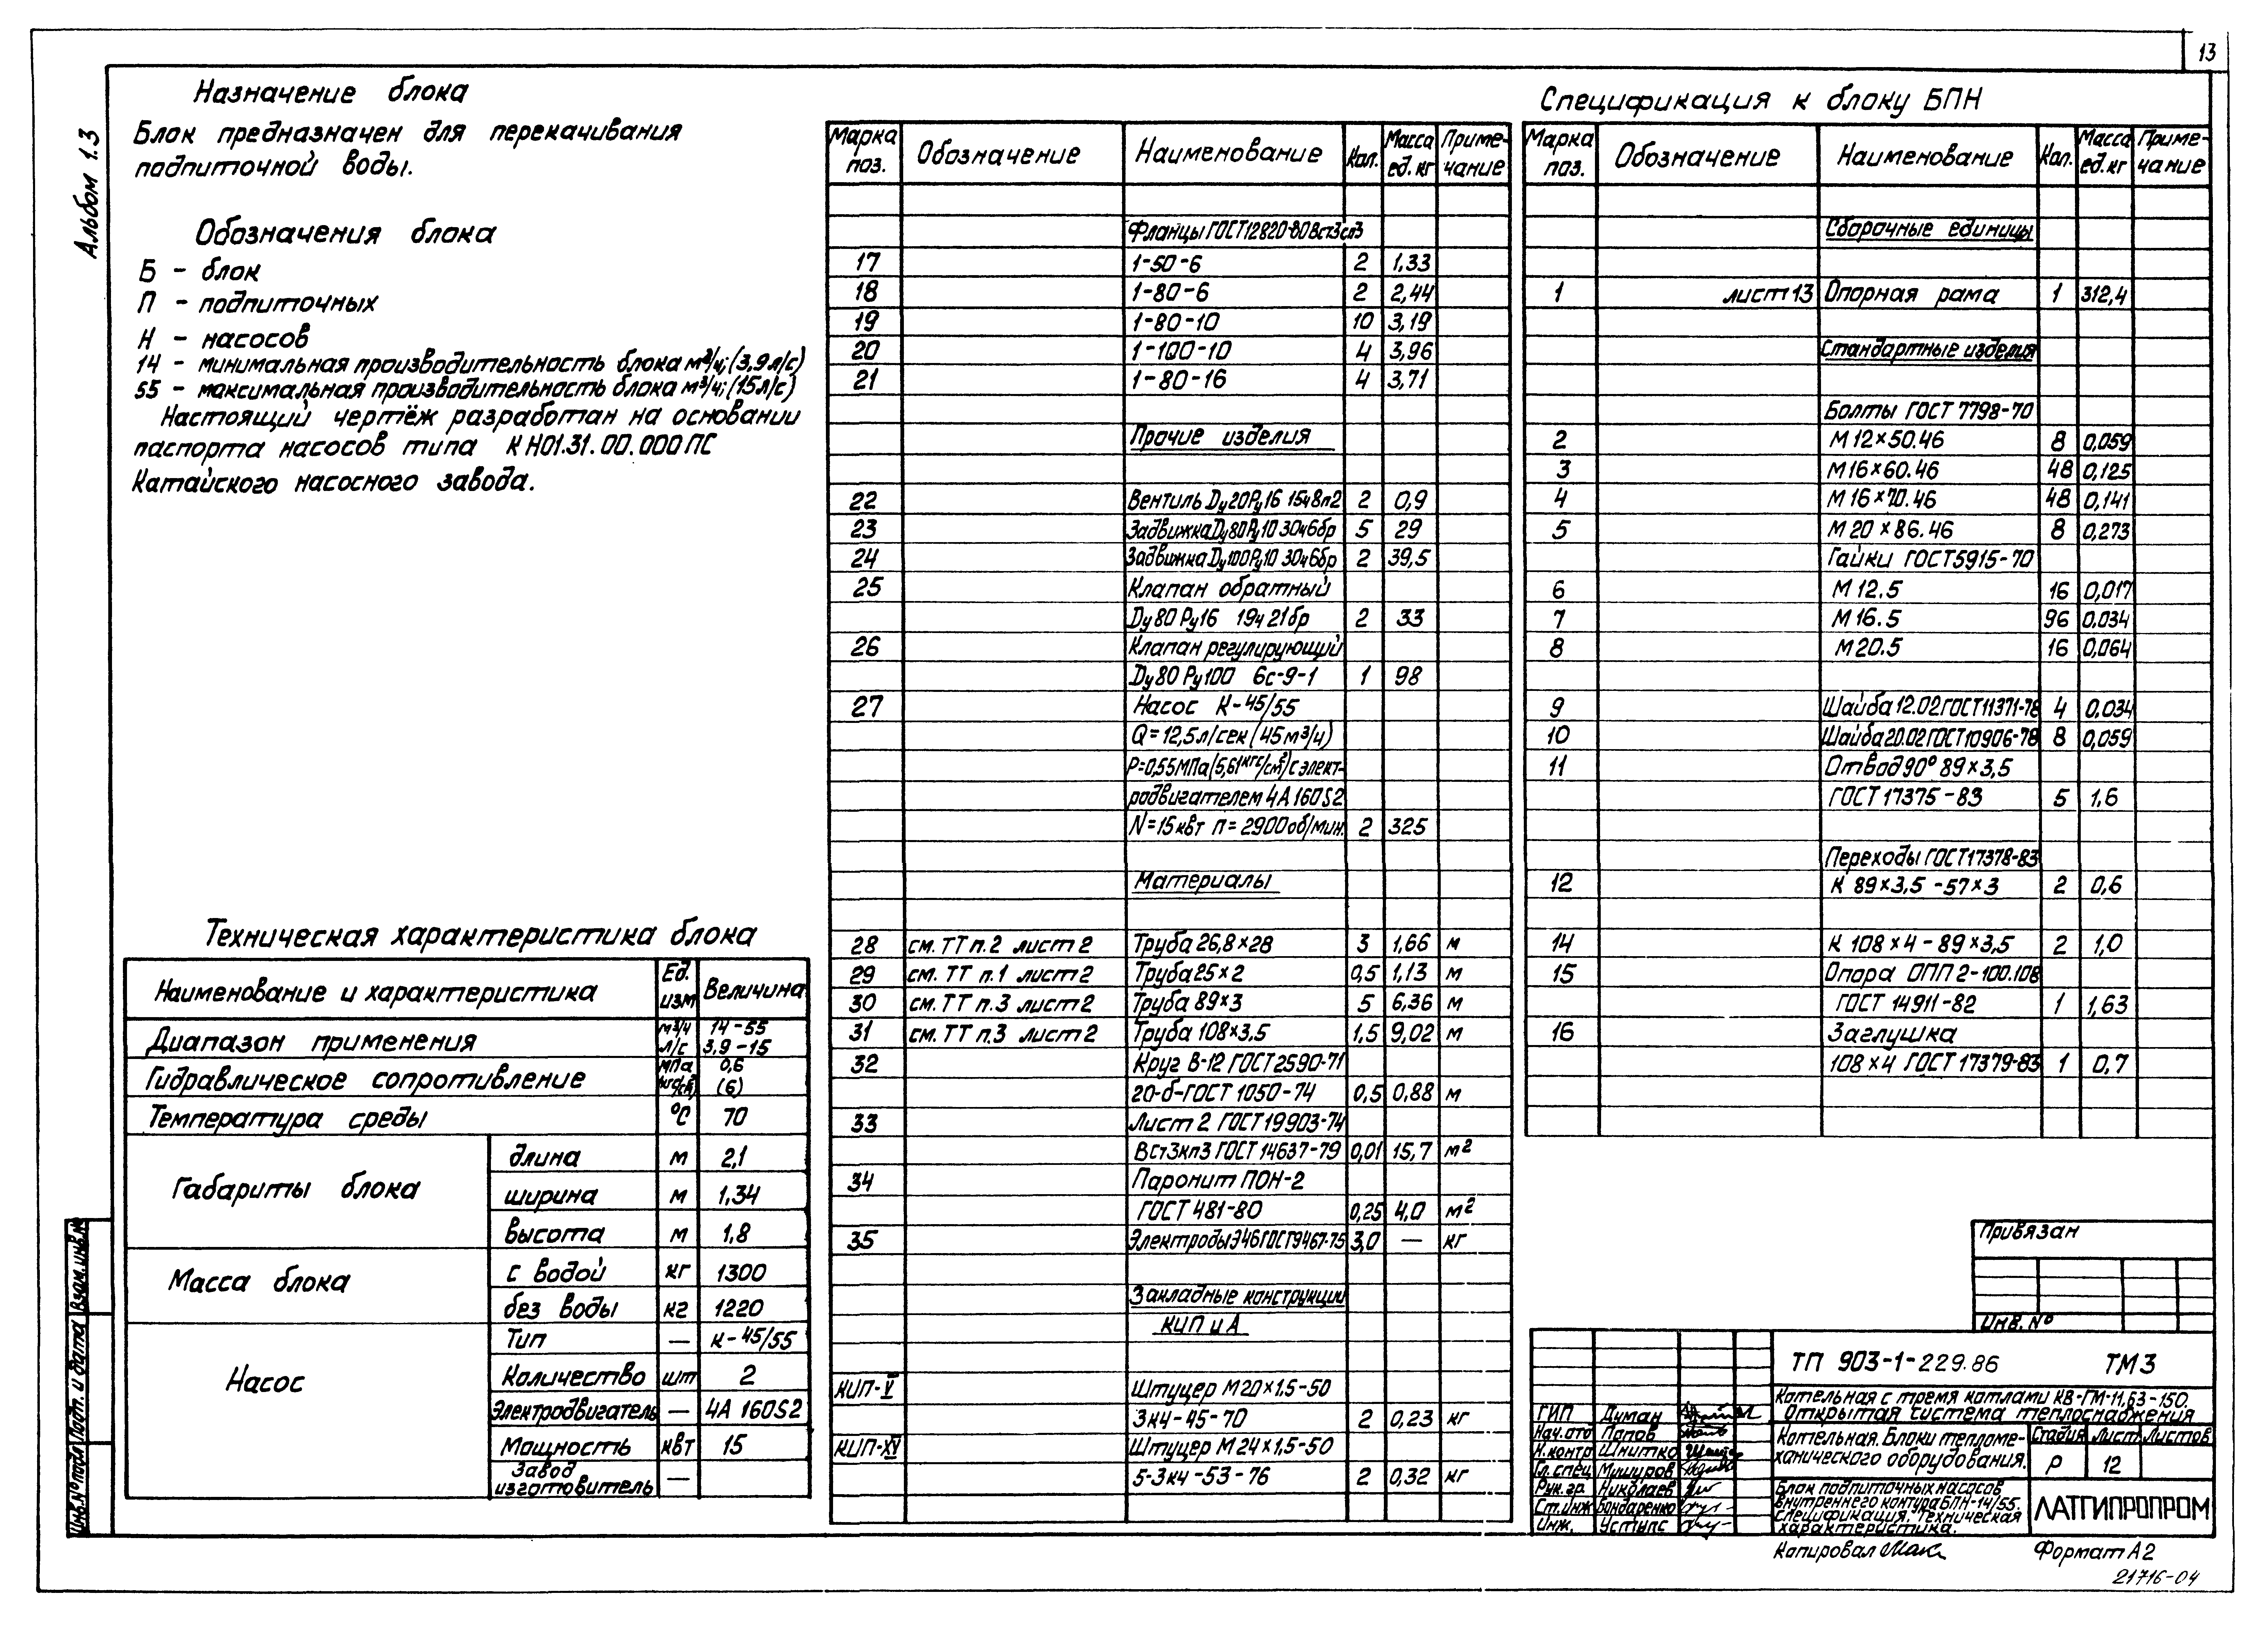 13
Альбом 1.3
Назначение блока
Блок предназначен для перекачивания
подпиточной воды.
Обозначения блока
Б - блок
П - подпиточных
Н - насосов
14 - минимальная производительность блока м³/ч; (3,9л/с)
55 - максимальная производительность блока м³/ч; (15л/с)
Настоящий чертёж разработан на основании
паспорта насосов типа К Н01.31.00.000 ПС
Катайского насосного завода.
Техническая характеристика блока
Наименование и характеристика Ед. изм Величина
Диапазон применения м³/ч 14-55
л/с 3,9-15
Гидравлическое сопротивление МПа 0,6
(кгс/см²) (6)
Температура среды °С 70
Габариты блока длина м 2,1
ширина м 1,34
высота м 1,8
Масса блока с водой кг 1300
без воды кг 1220
Насос Тип — К-45/55
Количество шт 2
Электродвигатель — 4А 160S2
Мощность квт 15
Завод изготовитель —
Марка поз. Обозначение Наименование Кол. Масса ед. кг Примечание
Фланцы ГОСТ12820-80 Вст3сп3
17 1-50-6 2 1,33
18 1-80-6 2 2,44
19 1-80-10 10 3,19
20 1-100-10 4 3,96
21 1-80-16 4 3,71
Прочие изделия
22 Вентиль Ду20Ру16 15ч8п2 2 0,9
23 Задвижка Ду80Ру10 30ч6бр 5 29
24 Задвижка Ду100Ру10 30ч6бр 2 39,5
25 Клапан обратный
Ду80 Ру16 19ч21бр 2 33
26 Клапан регулирующий
Ду80 Ру100 6с-9-1 1 98
27 Насос К-45/55
Q=12,5л/сек (45м³/ч)
Р=0,55МПа(5,61кгс/см²) с элект-
родвигателем 4А160S2
N=15квт п=2900об/мин. 2 325
Материалы
28 см. ТТ п.2 лист 2 Труба 26,8×28 3 1,66 м
29 см. ТТ п.1 лист 2 Труба 25×2 0,5 1,13 м
30 см. ТТ п.3 лист 2 Труба 89×3 5 6,36 м
31 см. ТТ п.3 лист 2 Труба 108×3,5 1,5 9,02 м
32 Круг В-12 ГОСТ2590-71
20-б-ГОСТ 1050-74 0,5 0,88 м
33 Лист 2 ГОСТ19903-74
Вст3кп3 ГОСТ 14637-79 0,01 15,7 м²
34 Паронит ПОН-2
ГОСТ 481-80 0,25 4,0 м²
35 Электроды Э46 ГОСТ9467-75 3,0 — кг
Закладные конструкции
КИП и А
КИП-V Штуцер М20×1,5-50
3к4-45-70 2 0,23 кг
КИП-XV Штуцер М24×1,5-50
5-3к4-53-76 2 0,32 кг
Спецификация к блоку БПН
Марка поз. Обозначение Наименование Кол. Масса ед. кг Примечание
Сборочные единицы
1 лист 13 Опорная рама 1 312,4
Стандартные изделия
Болты ГОСТ 7798-70
2 М12×50.46 8 0,059
3 М16×60.46 48 0,125
4 М16×70.46 48 0,141
5 М20×86.46 8 0,273
Гайки ГОСТ5915-70
6 М12.5 16 0,017
7 М16.5 96 0,034
8 М20.5 16 0,064
9 Шайба 12.02 ГОСТ11371-78 4 0,034
10 Шайба 20.02 ГОСТ10906-78 8 0,059
11 Отвод 90° 89×3,5
ГОСТ 17375-83 5 1,6
Переходы ГОСТ17378-83
12 К 89×3,5-57×3 2 0,6
14 К 108×4-89×3,5 2 1,0
15 Опора ОПП 2-100.108
ГОСТ 14911-82 1 1,63
16 Заглушка
108×4 ГОСТ 17379-83 1 0,7
Привязан
Инв. №
ТП 903-1-229.86 ТМ3
Котельная с тремя котлами КВ-ГМ-11,63-150.
Открытая система теплоснабжения
ГИП Думан
Нач.отд Попов
Н.контр Шнитко
Гл.спец Мушуров
Рук.гр. Николаев
Ст.инж Бондаренко
Инж. Устипс
Котельная. Блоки тепломе-
ханического оборудования.
Стадия Лист Листов
Р 12
Блок подпиточных насосов
внутреннего контура БПН-14/55.
Спецификация. Техническая
характеристика.
ЛАТГИПРОПРОМ
Копировал Формат А2
21716-04
Инв.№ подл. Подп. и дата Взам.инв.№